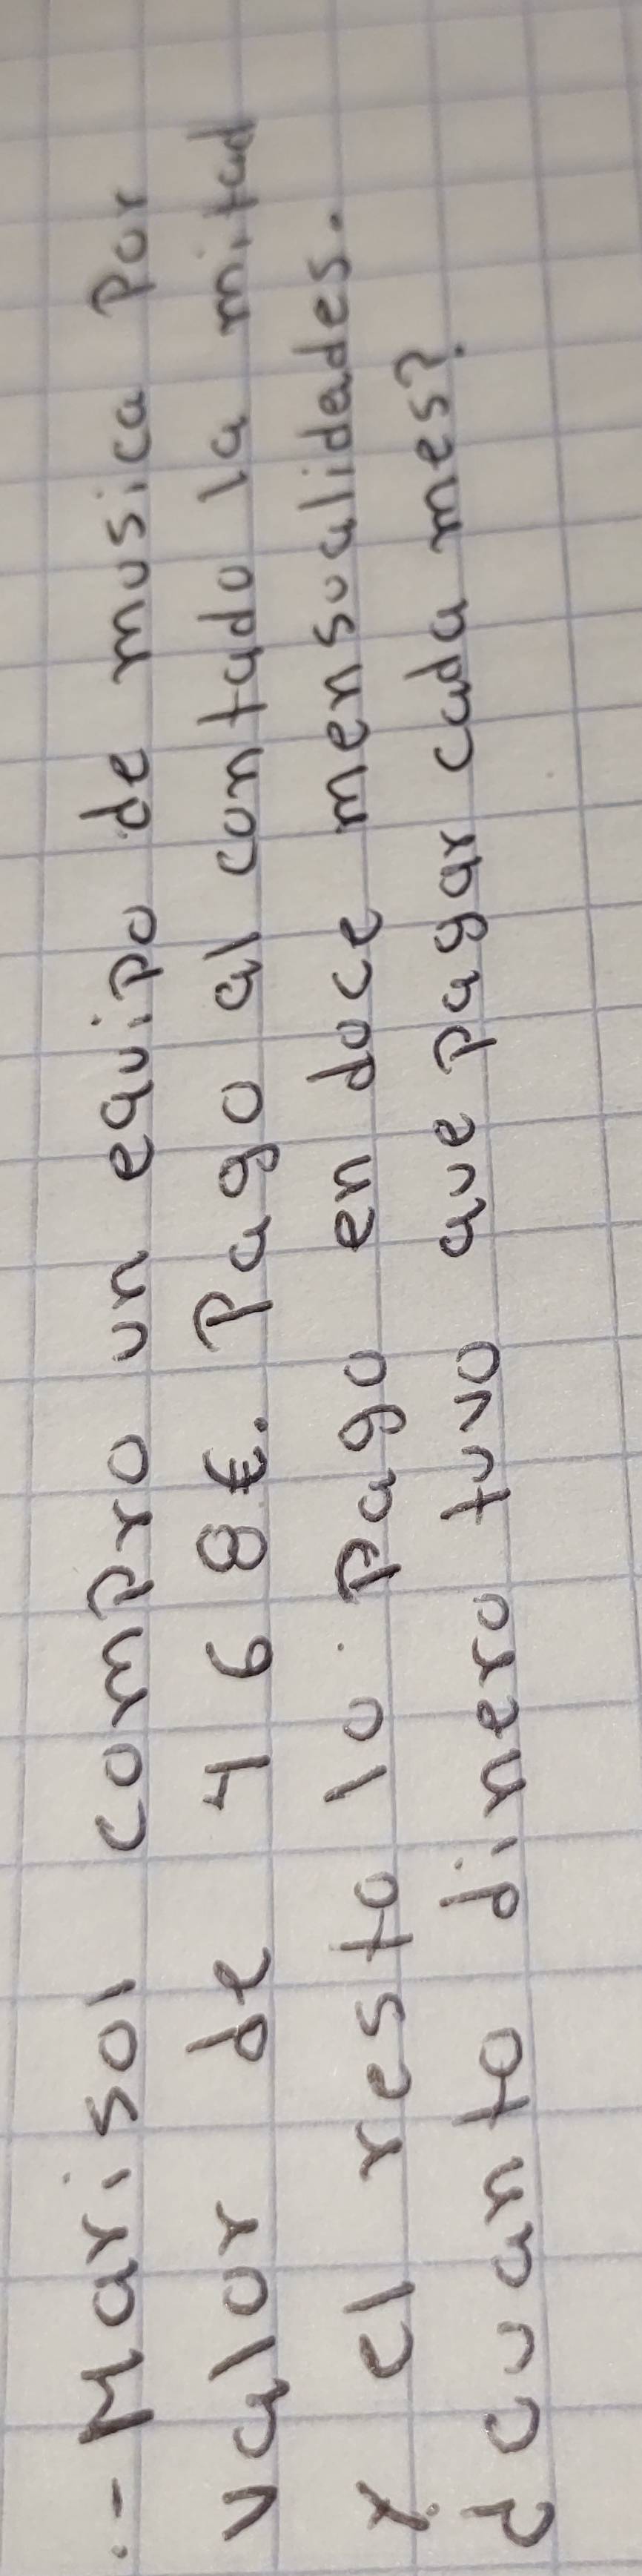 .- Marisol compro un equipo de musica por
valor de 468€. Pago al contado la mitad
y el resto lo pago en doce mensualidades.
¿cuanto dinero tuvo que pagar cada mes?